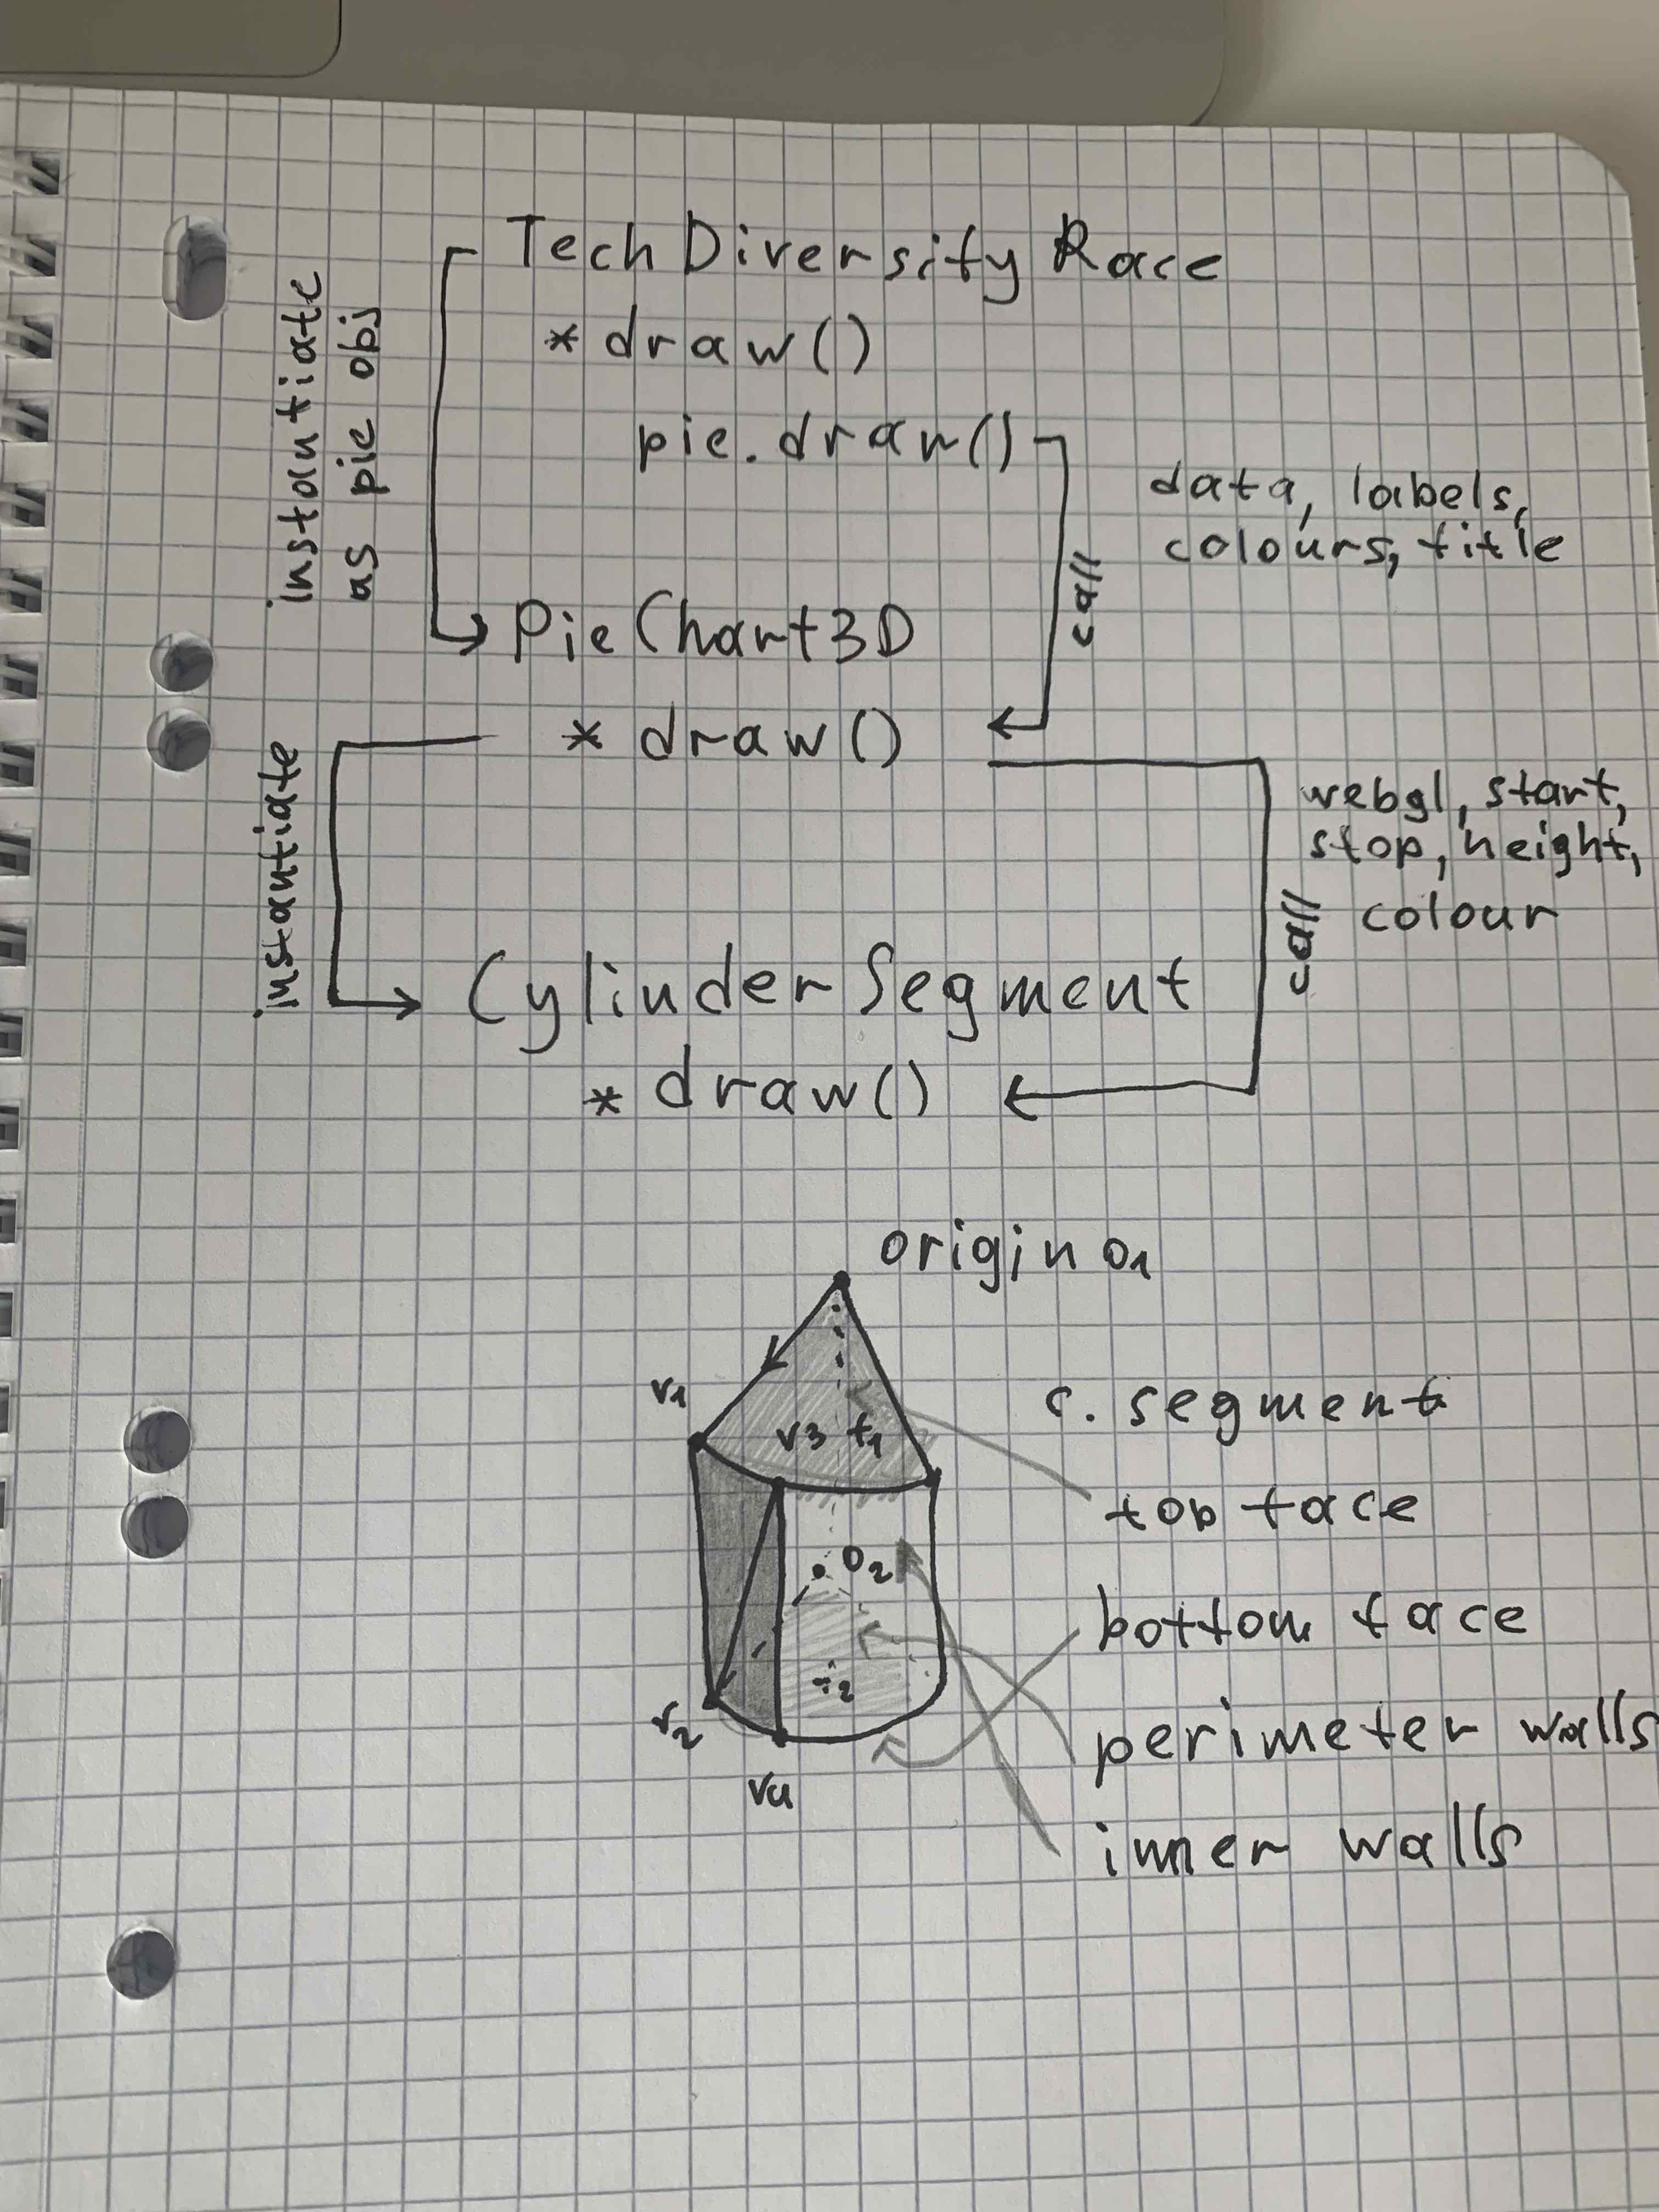 Tech Diversity Race
* draw()
instantiate
as pie obj
pie.draw()
data, labels,
colours, title
call
PieChart3D
* draw()
instantiate
webgl, start,
stop, height,
colour
call
CylinderSegment
* draw()
origin o1
v1
c. segment
v3 t1
top face
o2
bottom face
t2
v2
perimeter walls
v4
inner walls